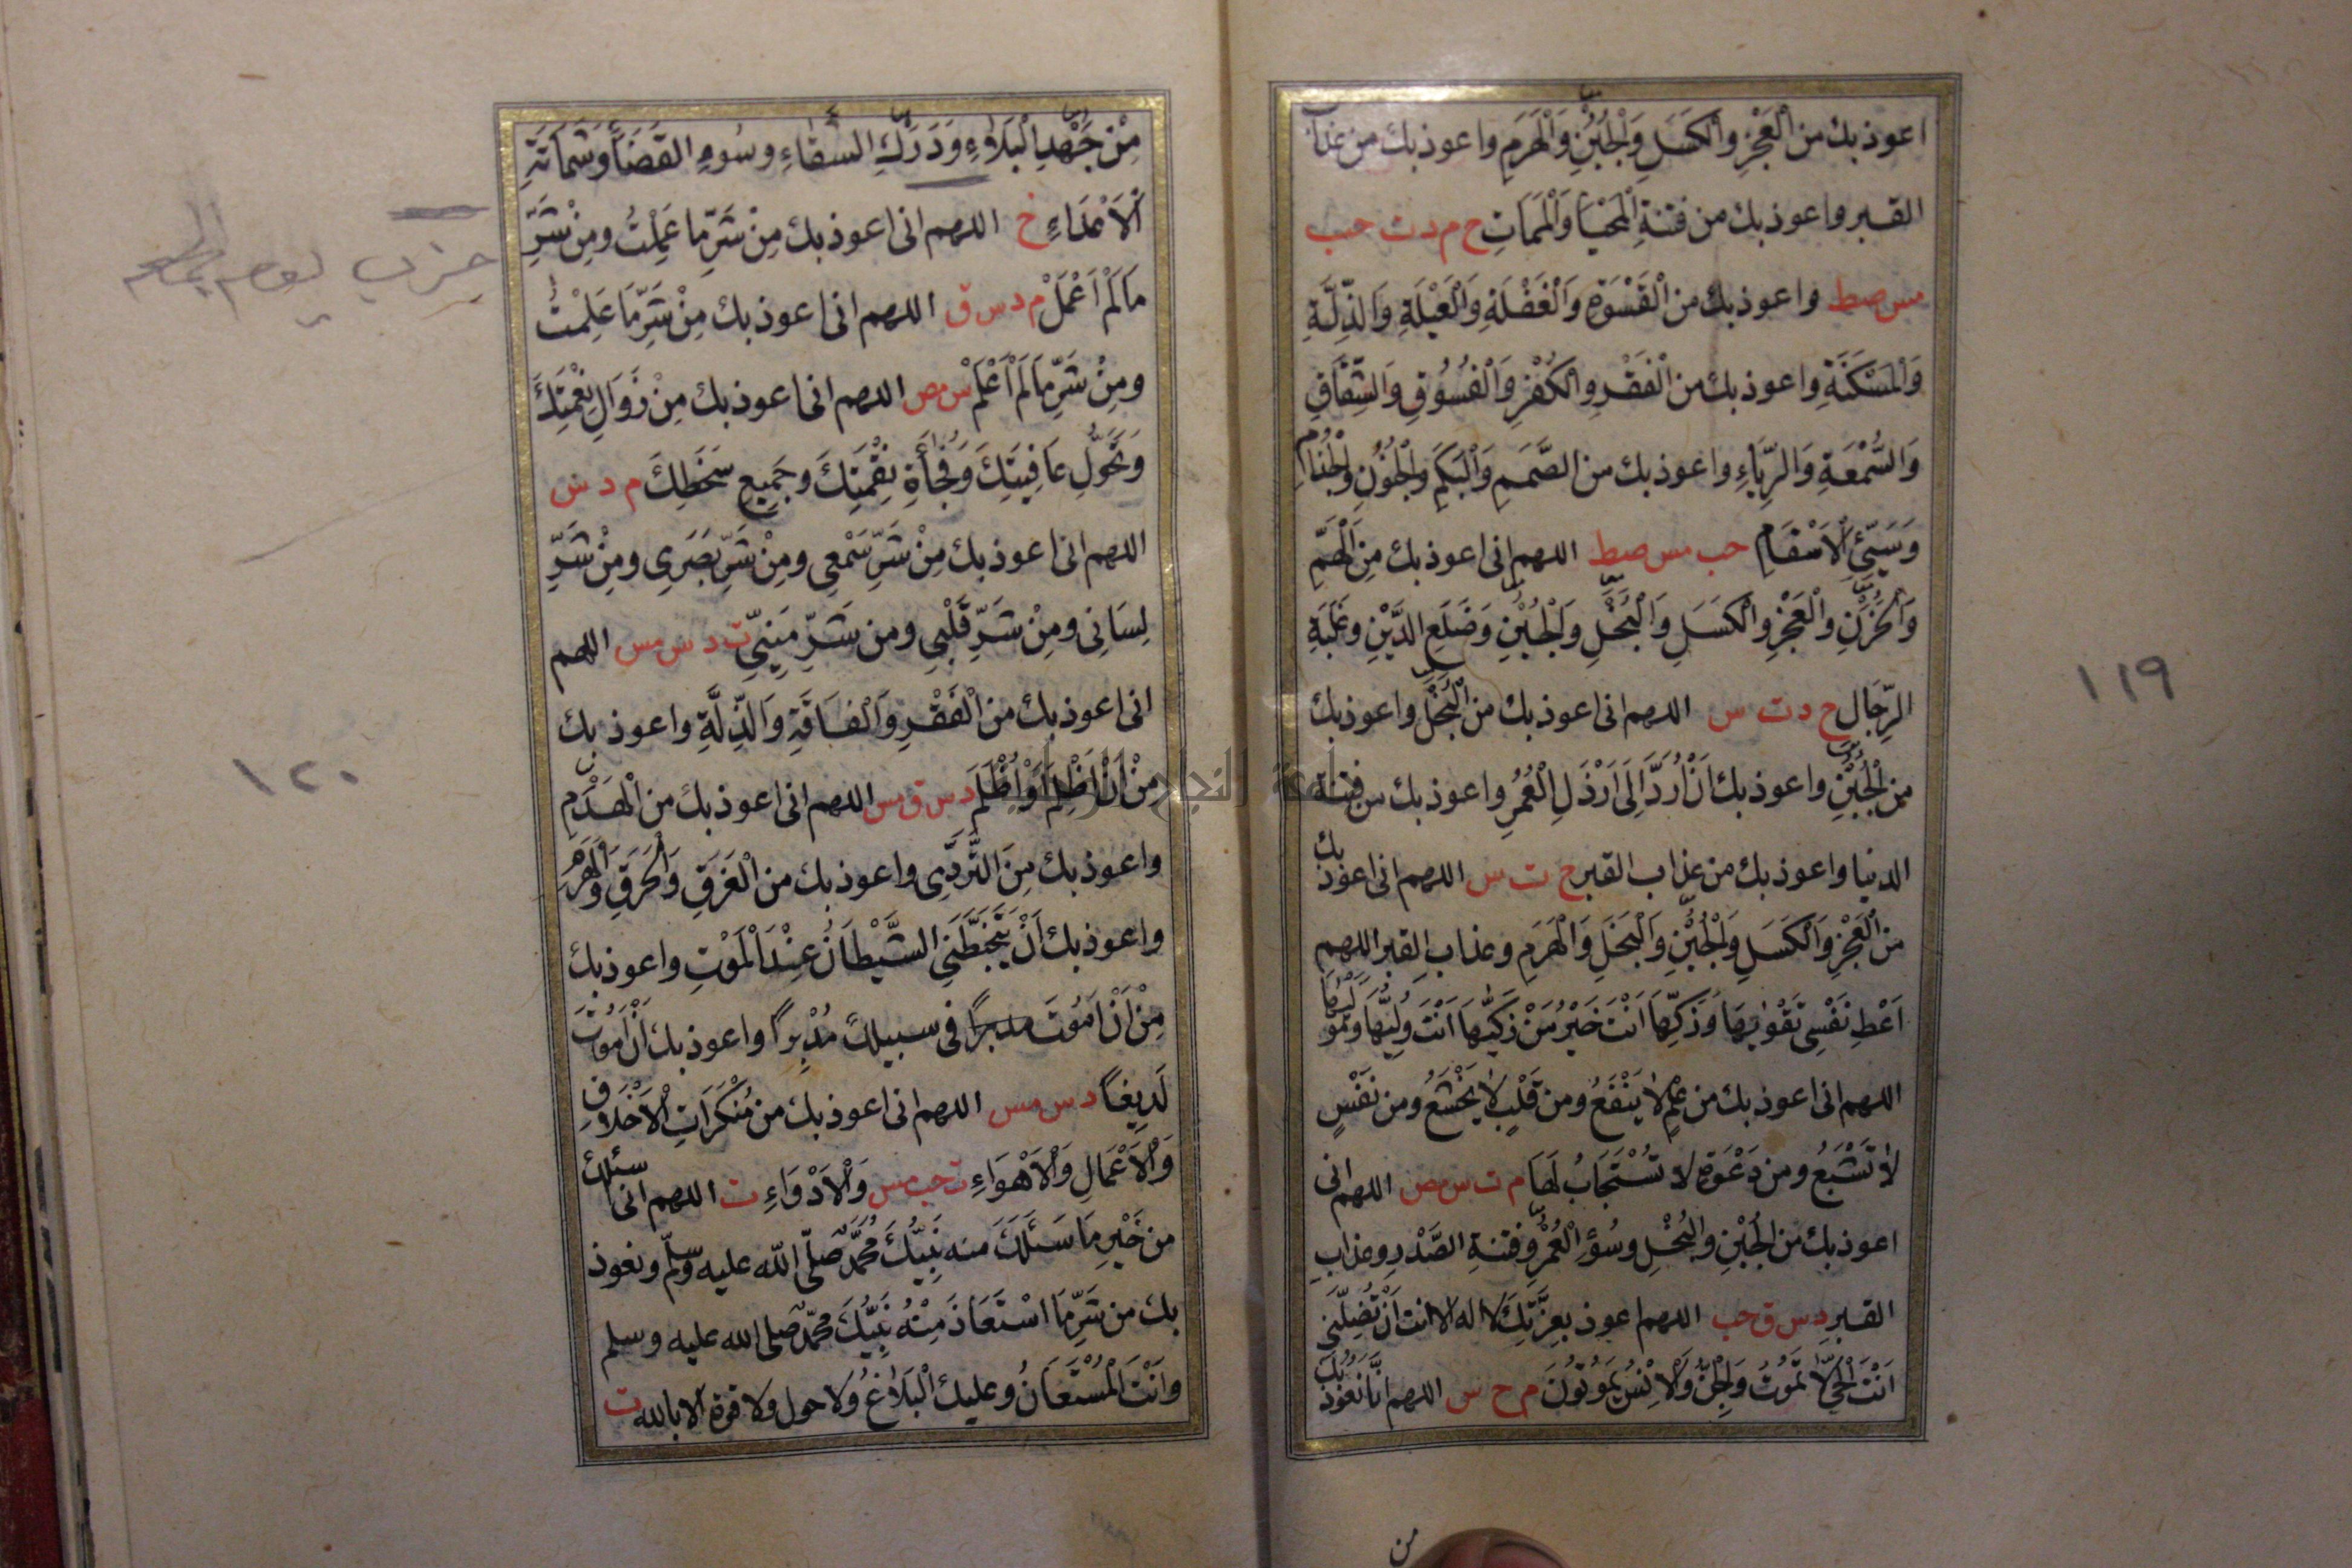 اعوذ بك من الْعَجْزِ وَالْكَسَلِ وَالْجُبْنِ وَالْهَرَمِ واعوذ بك من عذاب
القبر واعوذ بك من فتنةِ الْمَحْيَا وَالْمَمَاتِ خ م د ت حب
مس صط واعوذ بك من الْقَسْوَةِ وَالْغَفْلَةِ وَالْعَيْلَةِ وَالذِّلَّةِ
وَالْمَسْكَنَةِ واعوذ بك من الْفَقْرِ والْكُفْرِ وَالْفُسُوقِ وَالشِّقَاقِ
وَالسُّمْعَةِ وَالرِّيَاءِ واعوذ بك من الصَّمَمِ وَالْبَكَمِ وَالْجُنُونِ وَالْجُذَامِ
وَسَيِّئِ الْاَسْقَامِ حب مس صط اللهم انى اعوذ بك مِنَ الْهَمِّ
وَالْحُزْنِ وَالْعَجْزِ والْكَسَلِ وَالْبُخْلِ وَالْجُبْنِ وَضَلَعِ الدَّيْنِ وغَلَبَةِ
الرِّجَالِ خ د ت س اللهم انى اعوذ بك من الْبُخْلِ واعوذ بك
من الْجُبْنِ واعوذ بك اَنْ اُرَدَّ اِلَى اَرْذَلِ الْعُمُرِ واعوذ بك من فتنة
الدنيا واعوذ بك من عذاب القبر خ ت س اللهم انى اعوذ بك
من الْعَجْزِ وَالْكَسَلِ وَالْجُبْنِ وَالْبُخْلِ وَالْهَرَمِ وعذابِ القبر اللهم
اَعْطِ نَفْسِى تَقْوٰيهَا وَزَكِّهَا اَنْتَ خَيْرُ مَنْ زَكّٰيهَا اَنْتَ وَلِيُّهَا وَمَوْلٰيهَا
اللهم انى اعوذ بك من عِلْمٍ لا يَنْفَعُ ومن قَلْبٍ لا يَخْشَعُ ومن نَفْسٍ
لا تَشْبَعُ ومن دَعْوَةٍ لا تُسْتَجَابُ لَهَا م ت س مص اللهم انى
اعوذ بك من الْجُبْنِ والْبُخْلِ وسُوءِ الْعُمُرِ وفتنةِ الصَّدْرِ وعذابِ
القبر د س ق حب اللهم اعوذ بِعِزَّتِكَ لا اله الا انت اَنْ تُضِلَّنِى
اَنْتَ الْحَىُّ لا تَمُوتُ وَالْجِنُّ وَالْاِنْسُ يَمُوتُونَ م خ س اللهم انَّا نَعُوذُ بك
من
١١٩
مِنْ جَهْدِ الْبَلَاءِ وَدَرَكِ الشقاءِ وسُوءِ القَضَاءِ وَشَمَاتَةِ
الْاَعْدَاءِ خ اللهم انى اعوذ بك مِنْ شَرِّ مَا عَمِلْتُ ومِنْ شَرِّ
مَا لَمْ اَعْمَلْ م د س ق اللهم انى اعوذ بك مِنْ شَرِّ مَا عَلِمْتُ
ومِنْ شَرِّ مَا لَمْ اَعْلَمْ س مص اللهم انى اعوذ بك مِنْ زَوَالِ نِعْمَتِكَ
وَتَحَوُّلِ عَافِيَتِكَ وَفُجْأَةِ نِقْمَتِكَ وجَمِيعِ سَخَطِكَ م د س
اللهم انى اعوذ بك مِنْ شَرِّ سَمْعِى ومِنْ شَرِّ بَصَرِى ومِنْ شَرِّ
لِسَانِى ومِنْ شَرِّ قَلْبِى ومن شَرِّ مَنِيِّى ت د س مس اللهم
انى اعوذ بك من الْفَقْرِ وَالْفَاقَةِ وَالذِّلَّةِ واعوذ بك
مِنْ اَنْ اَظْلِمَ اَوْ اُظْلَمَ د س ق مس اللهم انى اعوذ بك من الْهَدْمِ
واعوذ بك مِنَ التَّرَدِّى واعوذ بك من الْغَرَقِ وَالْحَرَقِ وَالْهَرَمِ
واعوذ بك اَنْ يَتَخَبَّطَنِى الشَّيْطَانُ عِنْدَ الْمَوْتِ واعوذ بك
مِنْ اَنْ اَمُوتَ مدبرًا فى سبيلك مُدْبِرًا واعوذ بك اَنْ اَمُوتَ
لَدِيغًا د س مس اللهم انى اعوذ بك من مُنْكَرَاتِ الْاَخْلَاقِ
وَالْاَعْمَالِ وَالْاَهْوَاءِ ت حب مس وَالْاَدْوَاءِ ت اللهم انى اسئلك
من خَيْرِ مَا سَئَلَكَ منه نَبِيُّكَ مُحَمَّدٌ صَلَّى اللّٰه عليه وسلّم ونعوذ
بك من شَرِّ مَا اسْتَعَاذَ مِنْهُ نَبِيُّكَ محمّدٌ صلى الله عليه وسلم
وَاَنْتَ الْمُسْتَعَانُ وعليك الْبَلَاغُ وَلا حول ولا قوة الا بالله ت
حزب يوم
١٢٠